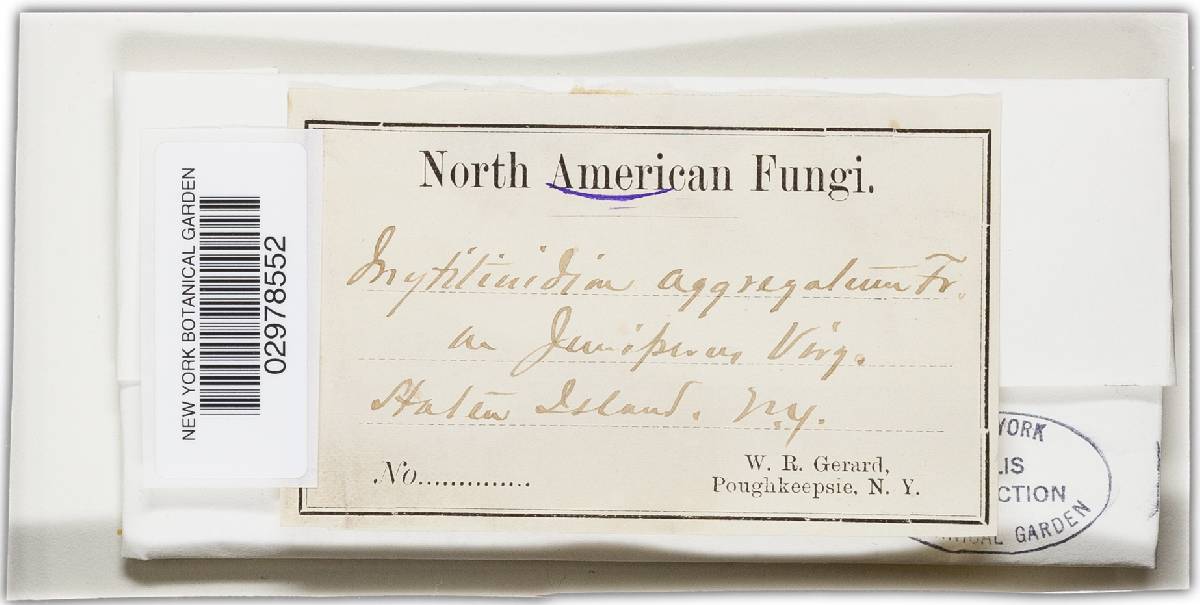 NEW YORK BOTANICAL GARDEN
02978552
North American Fungi.
Mytilinidion aggregatum Fr.
on Juniperus Virg.
Staten Island. N.Y.
No..............
W. R. Gerard,
Poughkeepsie, N. Y.
YORK
LIS
CTION
GARDEN